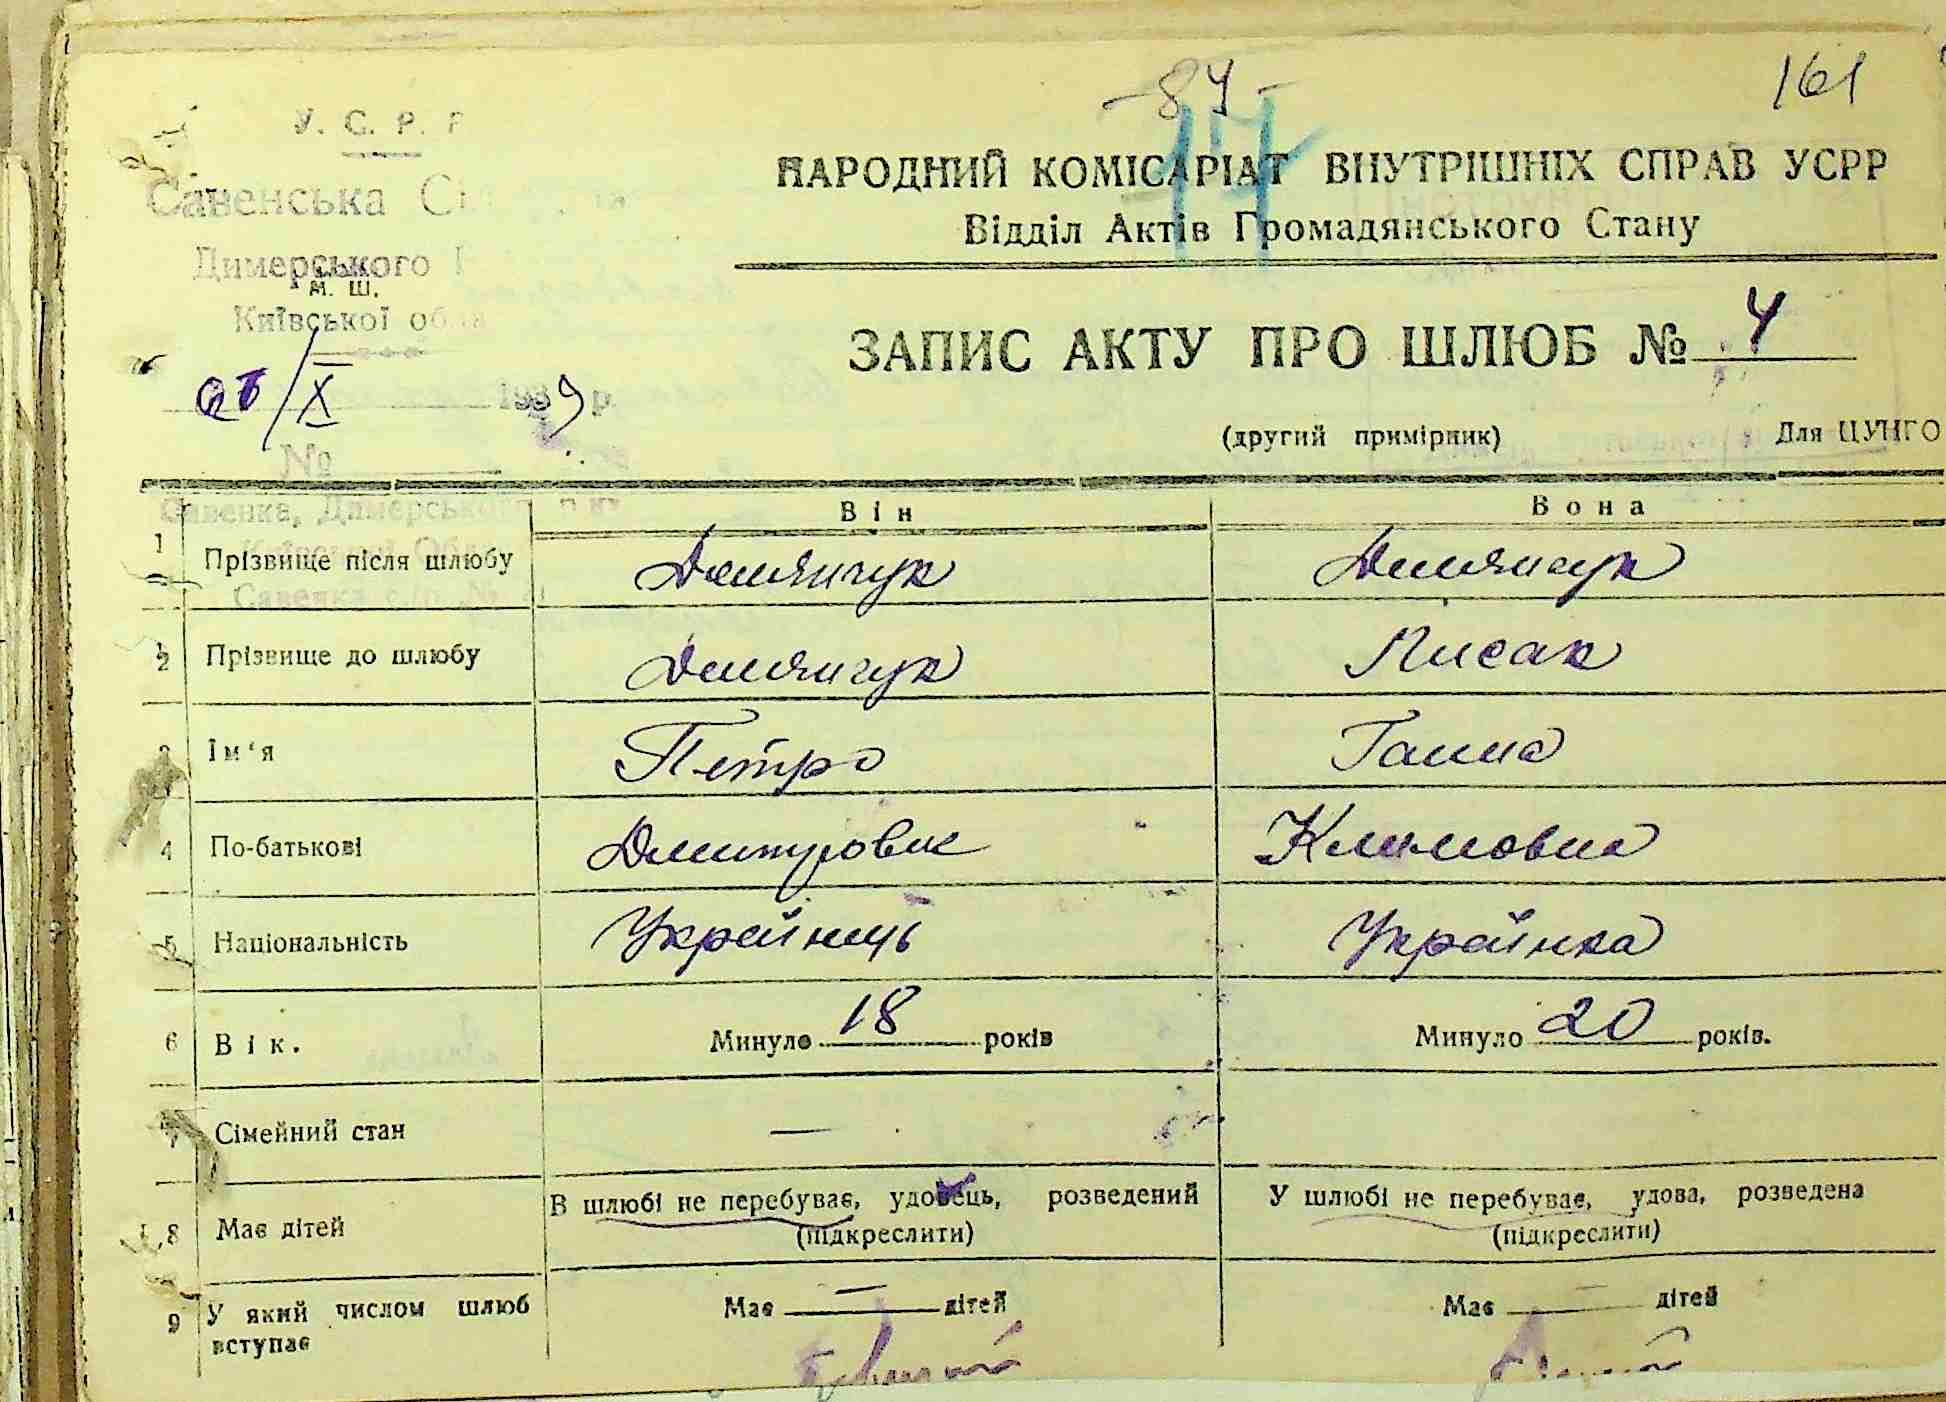 -87-
161
17
У. С. Р. Р
Савенська
Димерського
м. ш.
Київської
НАРОДНИЙ КОМІСАРІАТ ВНУТРІШНІХ СПРАВ УСРР
Відділ Актів Громадянського Стану
ЗАПИС АКТУ ПРО ШЛЮБ № 4
/X 1939 р.
№
(другий примірник) Для ЦУНГО
Савенка, Димерського
Він Вона
1 Прізвище після шлюбу Демянчук Демянчук
2 Прізвище до шлюбу Демянчук Лисак
3 Ім'я Петро Ганна
4 По-батькові Дмитрович Климовна
5 Національність Українець Українка
6 Вік. Минуло 18 років Минуло 20 років.
7 Сімейний стан —
8 Має дітей В шлюбі не перебуває, удовець, розведений (підкреслити) У шлюбі не перебуває, удова, розведена (підкреслити)
9 У який числом шлюб вступає Має — дітей Має — дітей